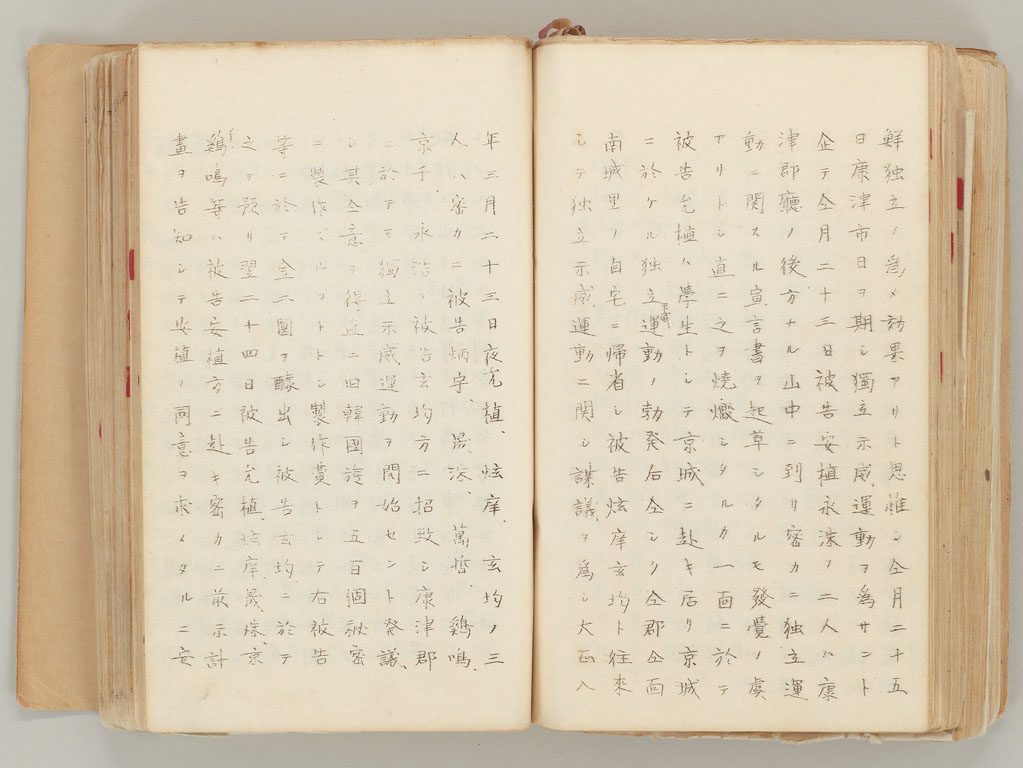 鮮独立ノ為メ効果アリト思惟シ仝月二十五
日康津市日ヲ期シ獨立示威運動ヲ為サント
企テ仝月二十三日被告安植永洙ノ二人ハ康
津郡廳ノ後方ナル山中ニ到リ密カニ独立運
動ニ関スル宣言書ヲ起草シタルモ發覺ノ虞
アリトシ直ニ之ヲ焼燬シタルカ一面ニ於テ
被告允植ハ學生トシテ京城ニ赴キ居リ京城
ニ於ケル独立運動ノ勃発后仝シク仝郡仝面
南城里ノ自宅ニ帰省シ被告炫庠玄均ト往來
シテ独立示威運動ニ関シ謀議ヲ為シ大正八
年三月二十三日夜允植、炫庠、玄均ノ三
人ハ密カニ被告炳宇、晟洙、萬哲、鷄鳴、
京千、永浩ヲ被告玄均方ニ招致シ康津郡
ニ於テモ獨立示威運動ヲ開始セント発議
シ其仝意ヲ得直ニ旧韓國旗ヲ五百個秘密
ニ製作スルコトトシ製作費トシテ右被告
等ニ於テ金二圓ヲ醵出シ被告玄均ニ於テ
之ヲ預リ翌二十四日被告允植、炫庠、晟洙、京
千鷄鳴等ハ被告安植方ニ赴キ密カニ前示計
畫ヲ告知シテ安植ノ同意ヲ求メタルニ安